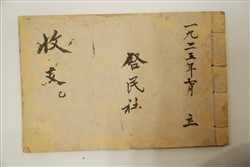 一九二五年 月 立
啓民社
收支